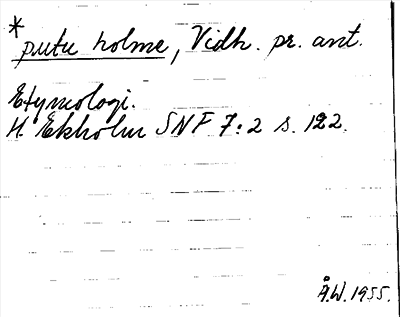 *putu holme, Vidh. pr. ant.
Etymologi.
H. Ekholm SNF 7:2 s. 122.
Å.W. 1955.